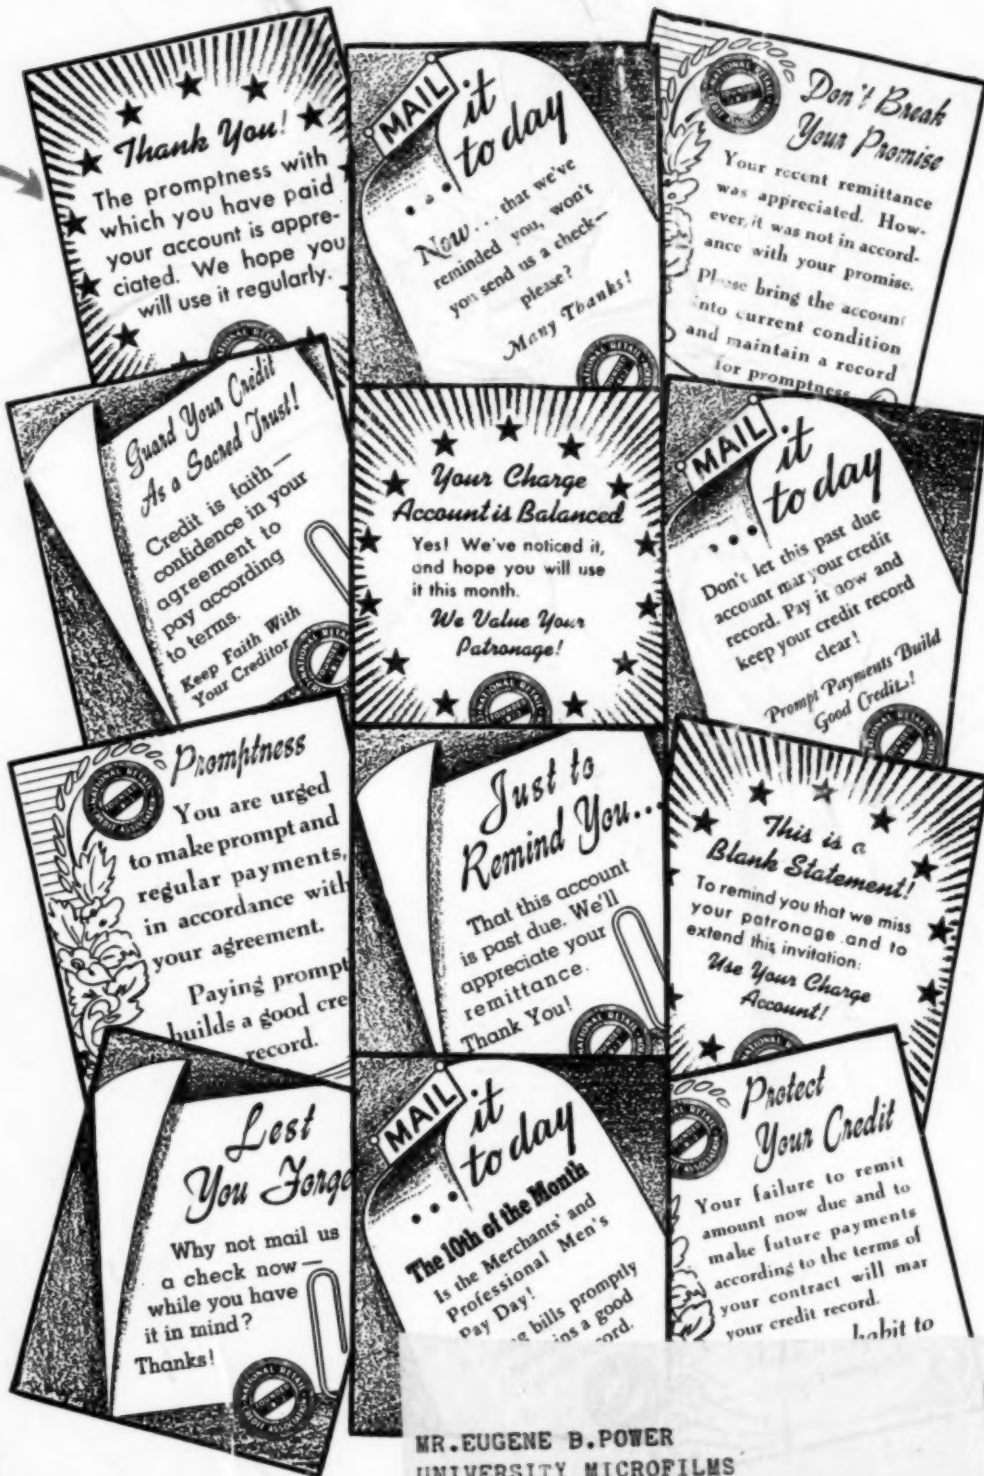 Thank You!
The promptness with
which you have paid
your account is appre-
ciated. We hope you
will use it regularly.
MAIL
it
today
Now... that we've
reminded you, won't
you send us a check—
please?
Many Thanks!
Don't Break
Your Promise
Your recent remittance
was appreciated. How-
ever, it was not in accord-
ance with your promise.
Please bring the account
into current condition
and maintain a record
for promptness
Guard Your Credit
As a Sacred Trust!
Credit is faith—
confidence in your
agreement to
pay according
to terms.
Keep Faith With
Your Creditor
Your Charge
Account is Balanced
Yes! We've noticed it,
and hope you will use
it this month.
We Value Your
Patronage!
MAIL
it
today
Don't let this past due
account mar your credit
record. Pay it now and
keep your credit record
clear!
Prompt Payments Build
Good Credit!
NATIONAL RETAIL
Promptness
You are urged
to make prompt and
regular payments,
in accordance with
your agreement.
Paying prompt
builds a good cre
record.
Just to
Remind You...
That this account
is past due. We'll
appreciate your
remittance.
Thank You!
This is a
Blank Statement!
To remind you that we miss
your patronage and to
extend this invitation:
Use Your Charge
Account!
Lest
You Forge
Why not mail us
a check now—
while you have
it in mind?
Thanks!
NATIONAL RETAIL
MAIL
it
today
The 10th of the Month
Is the Merchants' and
Professional Men's
Pay Day!
g bills promptly
ns a good
ord.
Protect
Your Credit
Your failure to remit
amount now due and to
make future payments
according to the terms of
your contract will mar
your credit record.
habit to
MR.EUGENE B.POWER
UNIVERSITY MICROFILMS